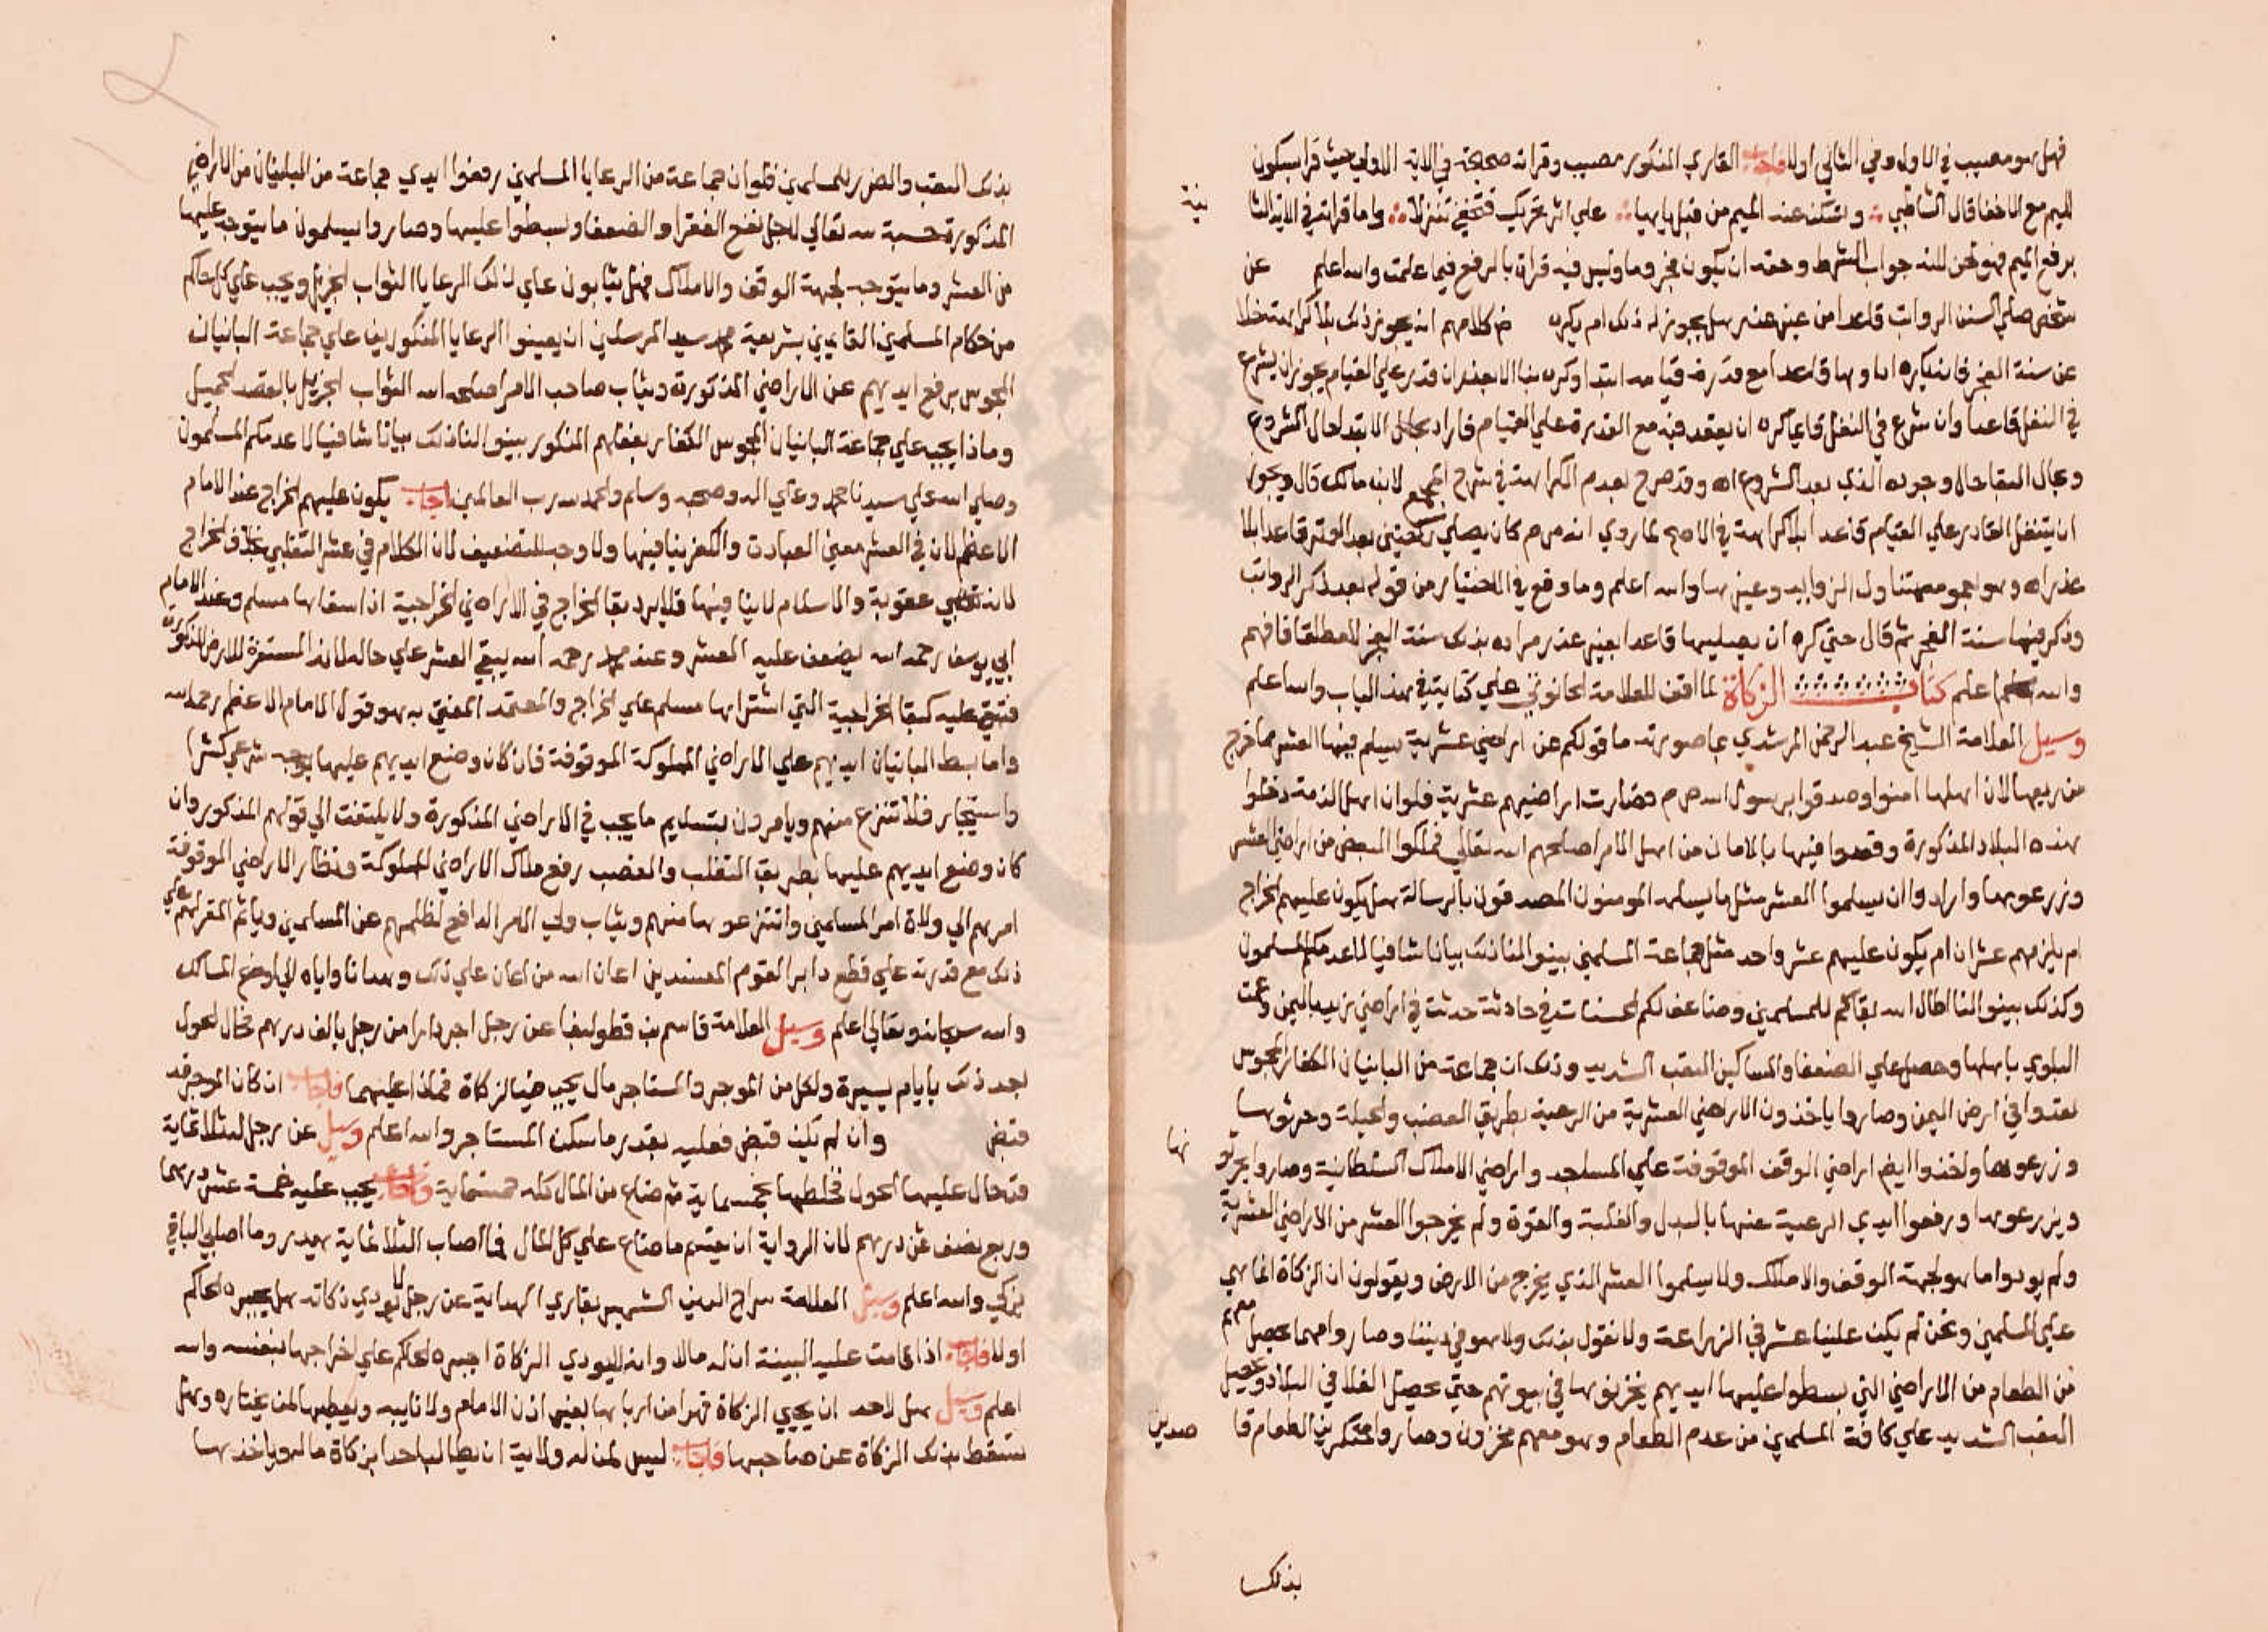 فهل هو مصيب في الاول وفي الثاني اولا فاجاب القاري المذكور مصيب وقراته صحيحة في الاية الاولي حيث قرا بسكون
الميم مع الاخفا قال الشاطبي وتسكن عند الميم من قبل بايها علي اثر تحريك فتخفي تنزلا واما قراته في الاية الثا نية
برفع الميم فهو لحن لانه جواب الشرط وحقه ان يكون مجزوما وليس فيه قراة بالرفع فيما علمت والله اعلم عن
شخص صلي السنن الرواتب قاعدا من غير عذر هل يجوز له ذلك ام يكره من كلامهم انه يجوز ذلك بلا كراهة خلا
عن سنة الفجر فانه يكره اداوها قاعدا مع قدرة قيامه ابتدا وكره بنا الا بعذر ان قدر علي القيام يجوز ان يشرع
في النفل قاعدا وان شرع في النفل قايما كره ان يقعد فيه مع القدرة علي القيام فاراد بحال الابتدا حال الشروع
وبحال البقا حال وجوده الذي بعد الشروع اه وقد صرح بعدم الكراهة في شرح المجمع لابن مالك قال ويجوز
ان يتنفل القادر علي القيام قاعدا بلا كراهة في الاصح لما روي انه ص م كان يصلي ركعتين بعد الوتر قاعدا بلا
عذر اه وهو بعمومه متناول الزوايد وغيرها والله اعلم وما وقع في الاختيار من قوله بعد ذكر الرواتب
وذكر فيها سنة الفجر ثم قال حتي كره ان يصليها قاعدا بغير عذر مراده بذلك سنة الفجر لا مطلقا فافهم
والله اعلم كتاب الزكاة لم اقف للعلامة الحانوتي علي كتابة في هذا الباب والله اعلم
وسيل العلامة الشيخ عبد الرحمن المرشدي بما صورته ما قولكم عن اراضي عشرية يسلم فيها العشر مما خرج
من ريعها لان اهلها امنوا وصدقوا برسول الله ص م فصارت اراضيهم عشرية فلو ان اهل الذمة دخلوا
هذه البلاد المذكورة وقعدوا فيها بالامان من اهل الامر اصلحهم الله تعالي فملكوا البعض من اراضي العشر
وزرعوها وارادوا ان يسلموا العشر مثل ما يسلمه المومنون المصدقون بالرسالة هل يكون عليهم الخراج
ام يلزمهم عشران ام يكون عليهم عشر واحد مثل جماعة المسلمين بينوا لنا ذلك بيانا شافيا لا عدمكم المسلمون
وكذلك بينوا لنا اطال الله بقاكم للمسلمين وضاعف لكم الحسنات في حادثة حدثت في اراضي زبيد باليمن وعمت
البلوي باهلها وحصل علي الضعفا والمساكين التعب الشديد وذلك ان جماعة من البانيان الكفار المجوس
تعدوا في ارض اليمن وصاروا ياخذون الاراضي العشرية من الرعية بطريق الغصب والحيلة وحرثوها
وزرعوها واخذوا ايضا اراضي الوقف الموقوفة علي المساجد واراضي الاملاك السلطانية وصاروا يحرثو نها
ويزرعوها ورفعوا ايدي الرعية عنها بالبدل والغلبة والقوة ولم يخرجوا العشر من الاراضي العشرية
ولم يودوا ما هو لجهة الوقف والاملاك ولا يسلموا العشر الذي يخرج من الارض ويقولون ان الزكاة انما هي
علي المسلمين ونحن لم يكن علينا عشر في الزراعة ولا نقول بذلك ولا هو في ديننا وصاروا مهما يحصل معهم
من الطعام من الاراضي التي بسطوا عليها ايديهم يخزنوها في بيوتهم حتي يحصل الغلا في البلاد ويحصل
التعب الشديد علي كافة المسلمين من عدم الطعام وهو معهم مخزون وصاروا محتكرين الطعام قا صدين
بذلك
بذلك التعب والضرر للمسلمين فلو ان جماعة من الرعايا المسلمين رفعوا ايدي جماعة من البانيان من الاراضي
المذكورة حسبة لله تعالي لاجل نفع الفقرا والضعفا وبسطوا عليها وصاروا يسلمون ما يتوجه عليها
من العشر وما يتوجه لجهة الوقف والاملاك فهل يثابون علي ذلك الرعايا الثواب الجزيل ويجب علي كل حاكم
من حكام المسلمين القايمين بشريعة محمد سيد المرسلين ان يعينوا الرعايا المذكورين علي جماعة البانيان
المجوس برفع ايديهم عن الاراضي المذكورة ويثاب صاحب الامر اصلحه الله الثواب الجزيل بالقصد الجميل
وماذا يجب علي جماعة البانيان المجوس الكفار بفعلهم المذكور بينوا لنا ذلك بيانا شافيا لا عدمكم المسلمون
وصلي الله علي سيدنا محمد وعلي اله وصحبه وسلم والحمد لله رب العالمين اجاب يكون عليهم الخراج عند الامام
الاعظم لان في العشر معني العبادة والكفر ينافيها ولا وجه للتضعيف لان الكلام في عشر التغلبي بخلاف الخراج
لانه عقوبة والاسلام لا ينافيها فلا يرد بقا الخراج في الاراضي الخراجية اذا سقاها مسلم وعند الامام
ابي يوسف رحمه الله يضعف عليه العشر وعند محمد رحمه الله يبقي العشر علي حاله لانه المستقرة للارض المذكورة
فتبقي عليه كبقا الخراجية التي اشتراها مسلم علي الخراج والمعتمد المفتي به هو قول الامام الاعظم رحمه الله
واما بسط البانيان ايديهم علي الاراضي المملوكة الموقوفة فان كان وضع ايديهم عليها بوجه شرعي كشرا
واستيجار فلا تنزع منهم ويامرون بتسليم ما يجب في الاراضي المذكورة ولا يلتفت الي قولهم المذكور وان
كان وضع ايديهم عليها بطريق التغلب والغصب رفع ملاك الاراضي المملوكة ونظار الاراضي الموقوفة
امرهم الي ولاة امر المسلمين وانتزعوها منهم ويثاب ولي الامر الدافع لظلمهم عن المسلمين وياثم المقر لهم علي
ذلك مع قدرته علي قطع دابر القوم المفسدين اعان الله من اعان علي ذلك وهدانا واياه الي اوضح المسالك
والله سبحانه وتعالي اعلم وسيل العلامة قاسم بن قطلوبغا عن رجل اجر دارا من رجل بالف درهم فحال الحول
بعد ذلك بايام يسيرة ولكل من الموجر والمستاجر مال يجب فيه الزكاة فماذا عليهما فاجاب ان كان الموجر قد
قبض وان لم يكن قبض فعليه بقدر ما سكن المستاجر والله اعلم وسيل عن رجل له ثلاثماية
قد حال عليها الحول فخلطها بخمسماية ثم ضاع من المال كله خمسماية فاجاب يجب عليه خمسة عشر درهما
وربع نصف ثمن درهم لان الرواية ان يقسم ما ضاع علي كل المال فما اصاب الثلاثماية يهدر وما اصلي الباقي
يزكي والله اعلم وسيل العلامة سراج الدين الشهير بقاري الهداية عن رجل لا يودي زكاته هل يجبره الحاكم
اولا فاجاب اذا قامت عليه البينة ان له مالا وانه لا يودي الزكاة اجبره الحاكم علي اخراجها بنفسه والله
اعلم وسيل هل لاحد ان يجبي الزكاة قهرا من اربابها بغير اذن الامام ولا نايبه ويعطيها لمن يختاره وهل
تسقط بذلك الزكاة عن صاحبها فاجاب ليس لمن له ولاية ان يطالب احدا بزكاة ماله وياخذها